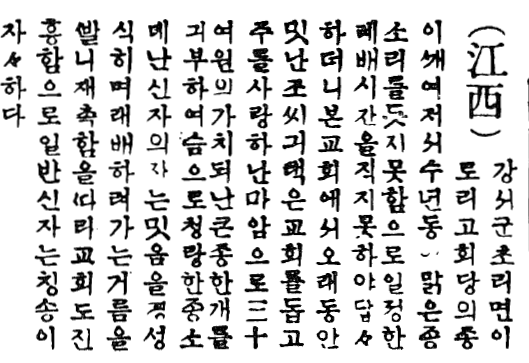 （江西）
강서군초리면이
로리고회당의종
이ᄭᅢ여저서수년동〻맑은종
소리를듯지못함으로일정한
례배시간을직지못하야답〻
하더니본교회애서오래동안
밋난조씨긔택은교회를돕고
주를사랑하난마암으로三十
여원의가치되난큰종한개를
긔부하여슴으로청량한종소
메난신자의자는밋음을성
식히며래배하려가는거름을
ᄲᅡᆯ니재촉함을ᄯᅡ리교회도진
흥함으로일반신자는칭송이
자〻하다